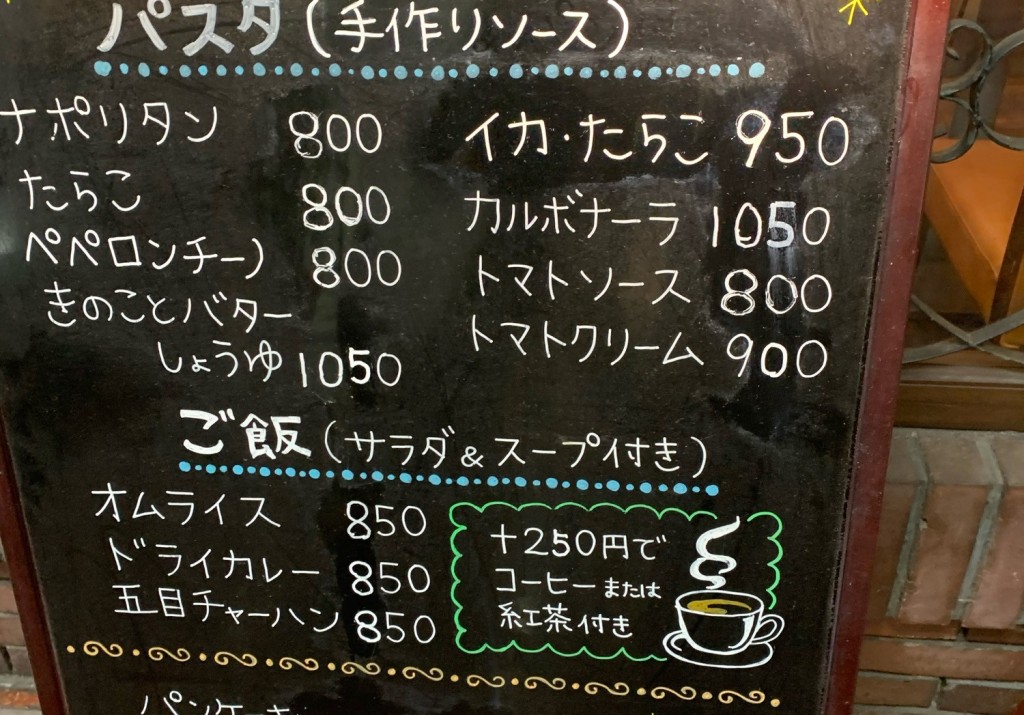 パスタ(手作りソース)
ナポリタン 800
たらこ 800
ペペロンチーノ 800
きのことバター
しょうゆ 1050
イカ・たらこ 950
カルボナーラ 1050
トマトソース 800
トマトクリーム 900
ご飯(サラダ&スープ付き)
オムライス 850
ドライカレー 850
五目チャーハン 850
+250円で
コーヒーまたは
紅茶付き
パンケーキ